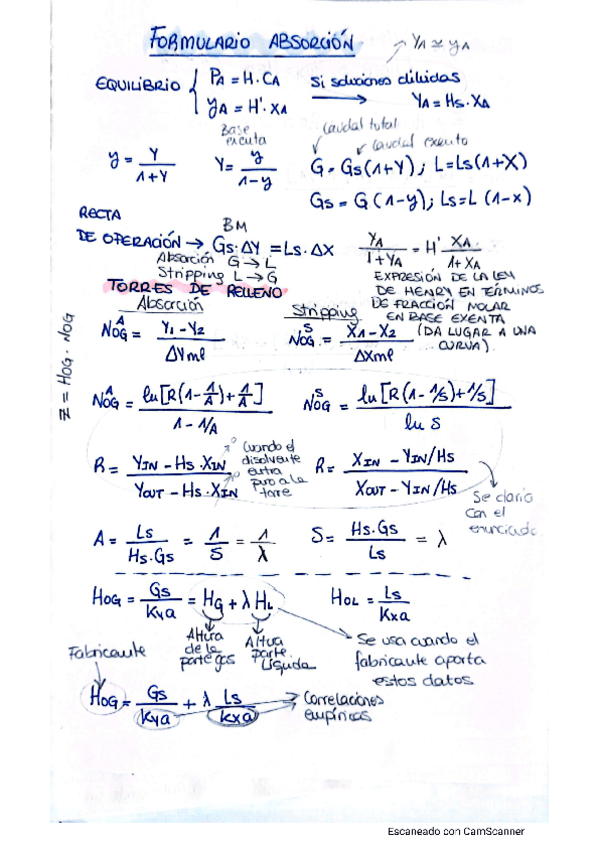 FORMULARIO ABSORCIÓN → YA ≃ yA
EQUILIBRIO { PA = H·CA
yA = H'·XA
Si soluciones diluidas →
YA = Hs·XA
Base exenta
Caudal total
caudal exento
y = Y / 1+Y
Y = y / 1-y
G = Gs(1+Y); L = Ls(1+X)
Gs = G(1-y); Ls = L(1-x)
RECTA
DE OPERACIÓN → Gs·ΔY = Ls·ΔX
BM
Absorción G → L
Stripping L → G
YA / 1+YA = H' XA / 1+XA
EXPRESIÓN DE LA LEY
DE HENRY EN TÉRMINOS
DE FRACCIÓN MOLAR
EN BASE EXENTA
(DA LUGAR A UNA
CURVA).
TORRES DE RELLENO
Z = HOG · NOG
Absorción
Stripping
NOG^A = Y1-Y2 / ΔYml
NOG^S = X1-X2 / ΔXml
NOG^A = ln[R(1-1/A)+1/A] / 1-1/A
NOG^S = ln[R(1-1/S)+1/S] / ln S
R = YIN - Hs·XIN / YOUT - Hs·XIN
0
0
Cuando el
disolvente
entra
puro a la
torre
R = XIN - YIN/Hs / XOUT - YIN/Hs
con el
enunciado
A = Ls / Hs·Gs = 1/S = 1/λ
S = Hs·Gs / Ls = λ
HOG = Gs / Kya = HG + λ HL
HOL = Ls / Kxa
Altura
de la
parte gas
Altura
parte
Líquida
Se usa cuando el
fabricante aporta
estos datos
Fabricante
HOG = Gs / kya + λ Ls / kxa
Correlaciones
empíricas
Escaneado con CamScanner